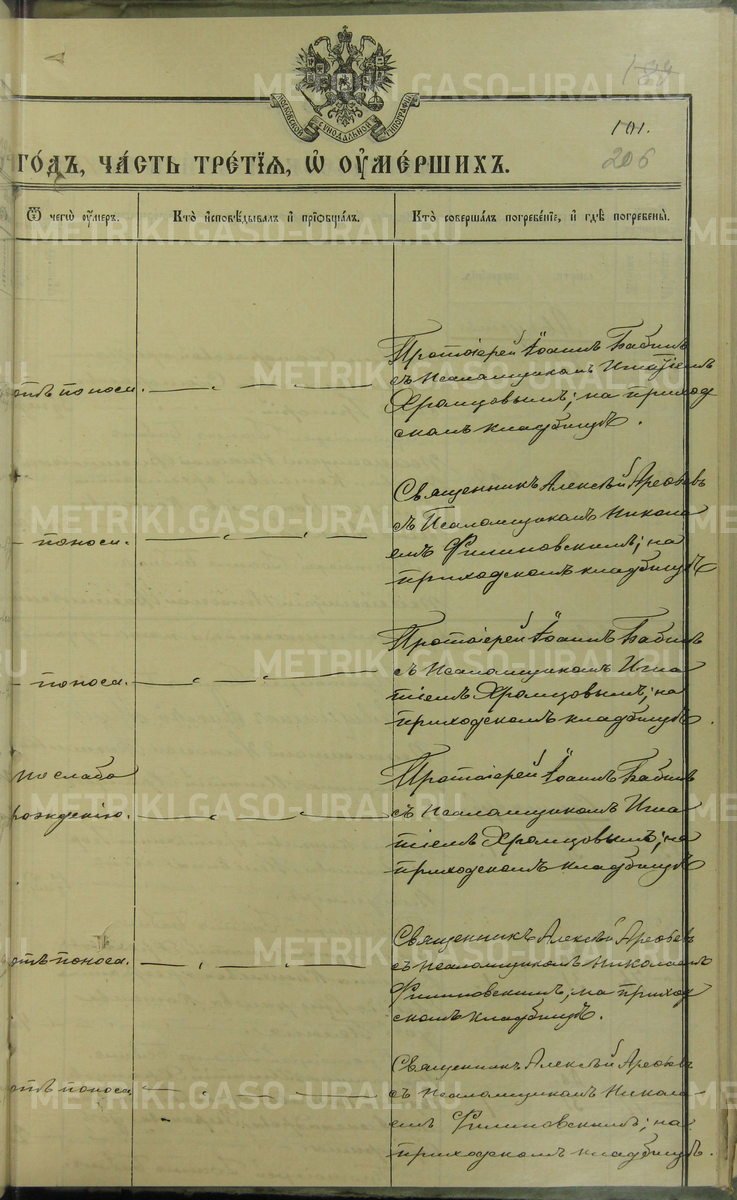 188
МОСКОВСКОЙ СѴНОДАЛЬНОЙ ТИПОГРАФІИ
101.
206
ГО́ДЪ, ЧА́СТЬ ТРЕ́ТІѦ, Ѡ ОУМЕ́РШИХЪ.
Ѿ чегѡ̀ оу́меръ.
Кто̀ и҆сповѣ́дывалъ и҆ прїѡбща́лъ.
Кто̀ соверша́лъ погребе́нїе, и҆ гдѣ̀ погребены̀.
отъ поноса.
Протоіерей Іоаннъ Бабинъ
съ Псаломщикомъ Игнатіемъ
Храмцовымъ; на приход
скомъ кладбищѣ.
– поноса.
Священникъ Алексѣй
съ Псаломщикомъ Никола
емъ Филиновскимъ; на
приходскомъ кладбищѣ
– поноса.
Протоіерей Іоаннъ Бабинъ
съ Псаломщикомъ Игна
тіемъ Храмцовымъ; на
приходскомъ кладбищѣ.
по слабо
рожденію.
Протоіерей Іоаннъ Бабинъ
съ Псаломщикомъ Игна
тіемъ Храмцовымъ; на
приходскомъ кладбищѣ
отъ поноса.
Священникъ Алексѣй
съ Псаломщикомъ Николаемъ
Филиновскимъ; на приход
скомъ кладбищѣ.
отъ поноса.
Священникъ Алексѣй
съ Псаломщикомъ Никола-
емъ Филиновскимъ; на
приходскомъ кладбищѣ.
METRIKI.GASO-URAL.RU